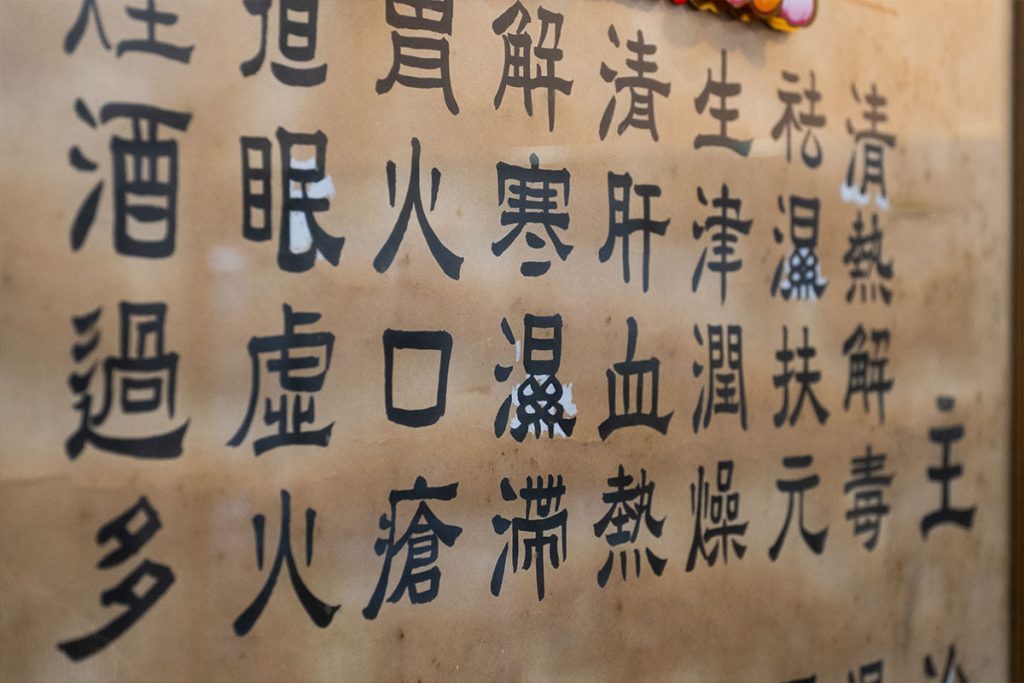 主
清熱解毒
祛濕扶元
生津潤燥
清肝血熱
解寒濕滯
胃火口瘡
眠虛火
煙酒過多